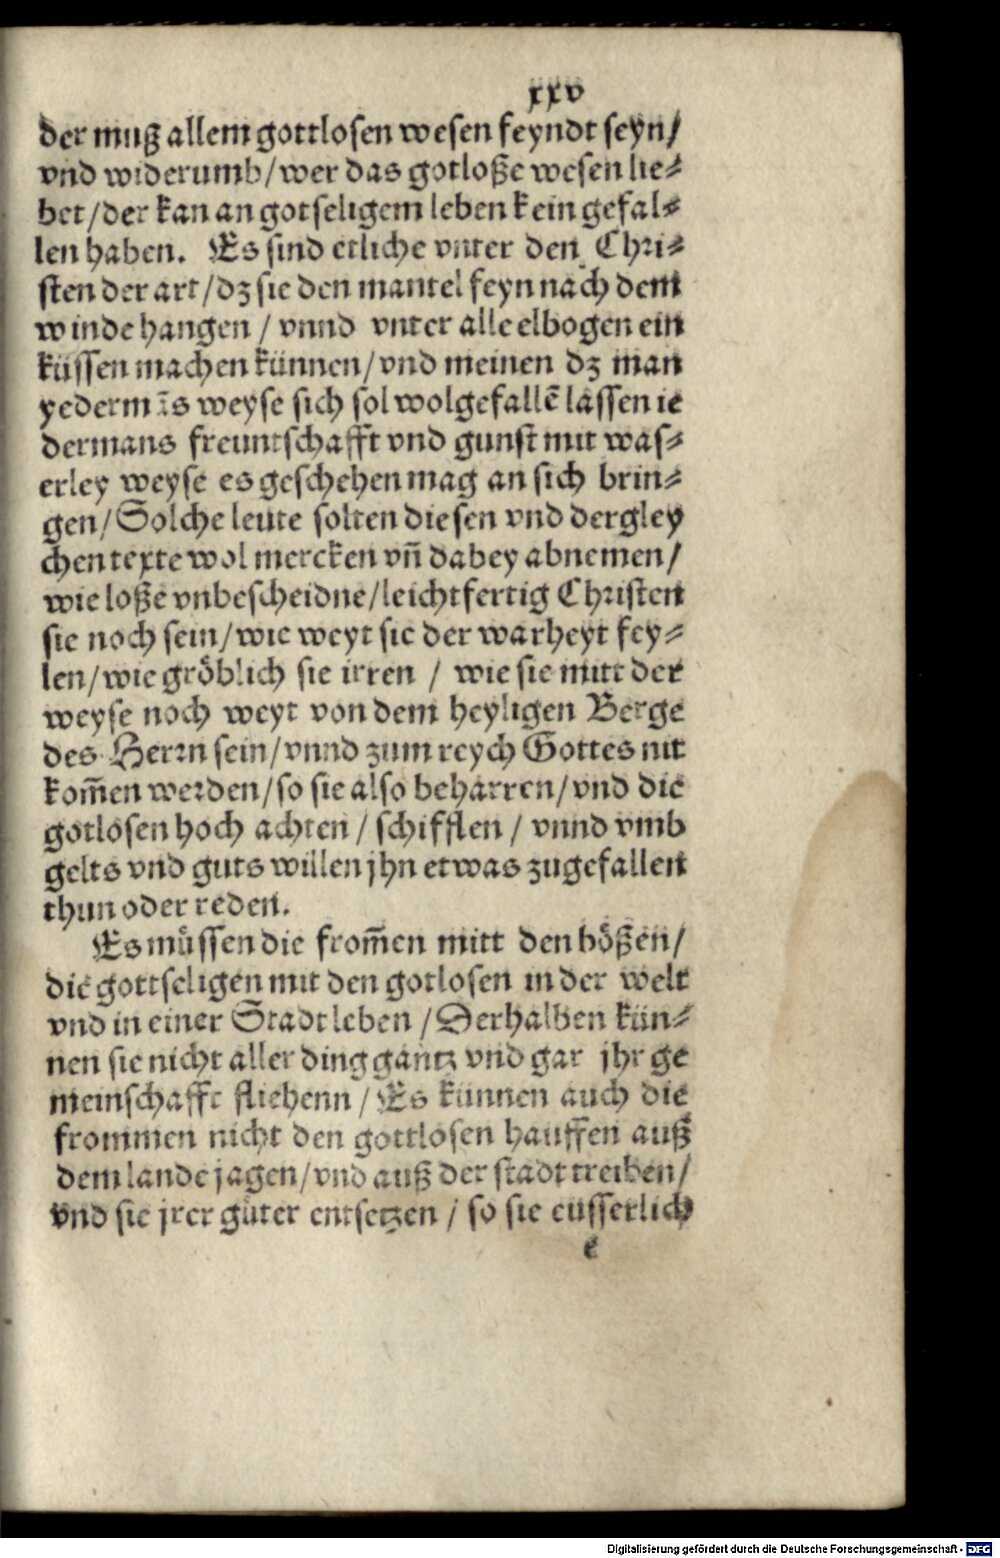 xxv
der muß allem gottlosen wesen feyndt seyn/
vnd widerumb/wer das gotloße wesen lie⸗
bet/der kan an gotseligem leben kein gefal⸗
len haben. Es sind etliche vnter den Chri⸗
sten der art/dz sie den mantel feyn nach dem
winde hangen / vnnd vnter alle elbogen ein
küssen machen künnen/vnd meinen dz man
yedermās weyse sich sol wolgefallē lassen ie
dermans freuntschafft vnd gunst mit was⸗
erley weyse es geschehen mag an sich brin⸗
gen/Solche leute solten diesen vnd dergley
chen texte wol mercken vn̄ dabey abnemen/
wie loße vnbescheidne/leichtfertig Christen
sie noch sein/wie weyt sie der warheyt fey⸗
len/wie gröblich sie irren / wie sie mitt der
weyse noch weyt von dem heyligen Berge
des Herrn sein/vnnd zum reych Gottes nit
kom̄en werden/so sie also beharren/vnd die
gotlosen hoch achten / schifflen / vnnd vmb
gelts vnd guts willen jhn etwas zugefallen
thun oder reden.
Es müssen die from̄en mitt den bößen/
die gottseligen mit den gotlosen in der welt
vnd in einer Stadt leben /Derhalben kün⸗
nen sie nicht aller ding gantz vnd gar jhr ge
meinschafft fliehenn / Es künnen auch die
frommen nicht den gottlosen hauffen auß
dem lande jagen/vnd auß der stadt treiben/
vnd sie jrer güter entsetzen / so sie eusserlich
e
Digitalisierung gefördert durch die Deutsche Forschungsgemeinschaft - DFG